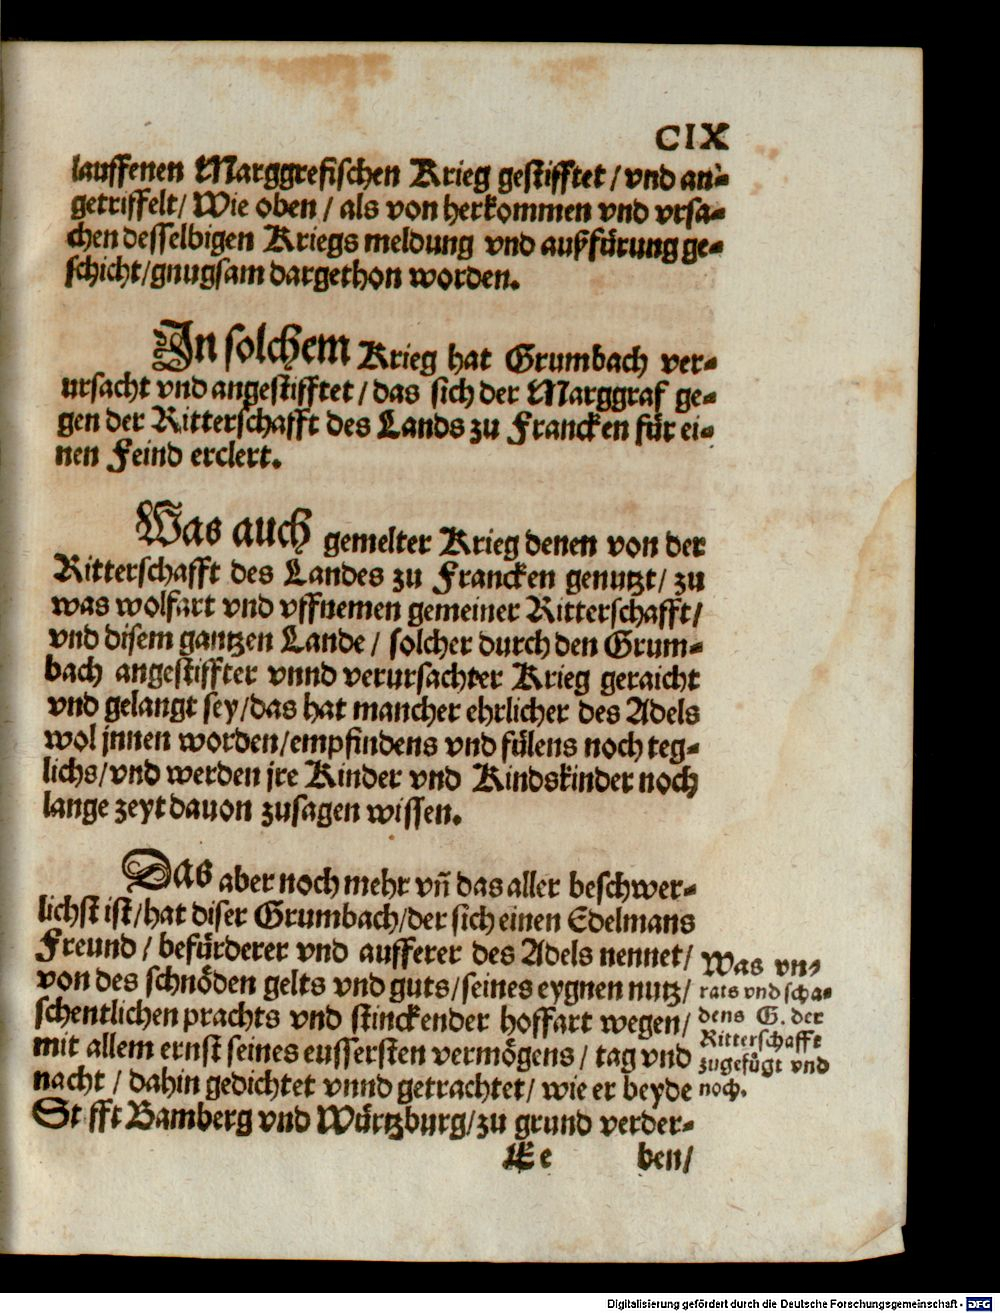 CIX
lauffenen Marggrefischen Krieg gestifftet / vnd an-
getriffelt / Wie oben / als von herkommen vnd vrsa-
chen desselbigen Kriegs meldung vnd außfürung ge-
schicht / gnugsam dargethon worden.
In solchem Krieg hat Grumbach ver-
ursacht vnd angestifftet / das sich der Marggraf ge-
gen der Ritterschafft des Lands zu Francken für ei-
nen Feind erclert.
Was auch gemelter Krieg denen von der
Ritterschafft des Landes zu Francken genutzt / zu
was wolfart vnd vffnemen gemeiner Ritterschafft /
vnd disem gantzen Lande / solcher durch den Grum-
bach angestiffter vnnd verursachter Krieg geraicht
vnd gelangt sey / das hat mancher ehrlicher des Adels
wol jnnen worden / empfindens vnd fülens noch teg-
lichs / vnd werden jre Kinder vnd Kindskinder noch
lange zeyt dauon zusagen wissen.
Das aber noch mehr vñ das aller beschwer-
lichst ist / hat diser Grumbach / der sich einen Edelmans
Freund / befürderer vnd aufferer des Adels nennet /
von des schnöden gelts vnd guts / seines eygnen nutz /
schentlichen prachts vnd stinckender hoffart wegen /
mit allem ernst seines eussersten vermögens / tag vnd
nacht / dahin gedichtet vnnd getrachtet / wie er beyde
St fft Bamberg vnd Würtzburg / zu grund verder-
Was vn-
rats vnd scha-
dens G. der
Ritterschafft
zugefügt vnd
noch.
Ee ben /
Digitalisierung gefördert durch die Deutsche Forschungsgemeinschaft - DFG